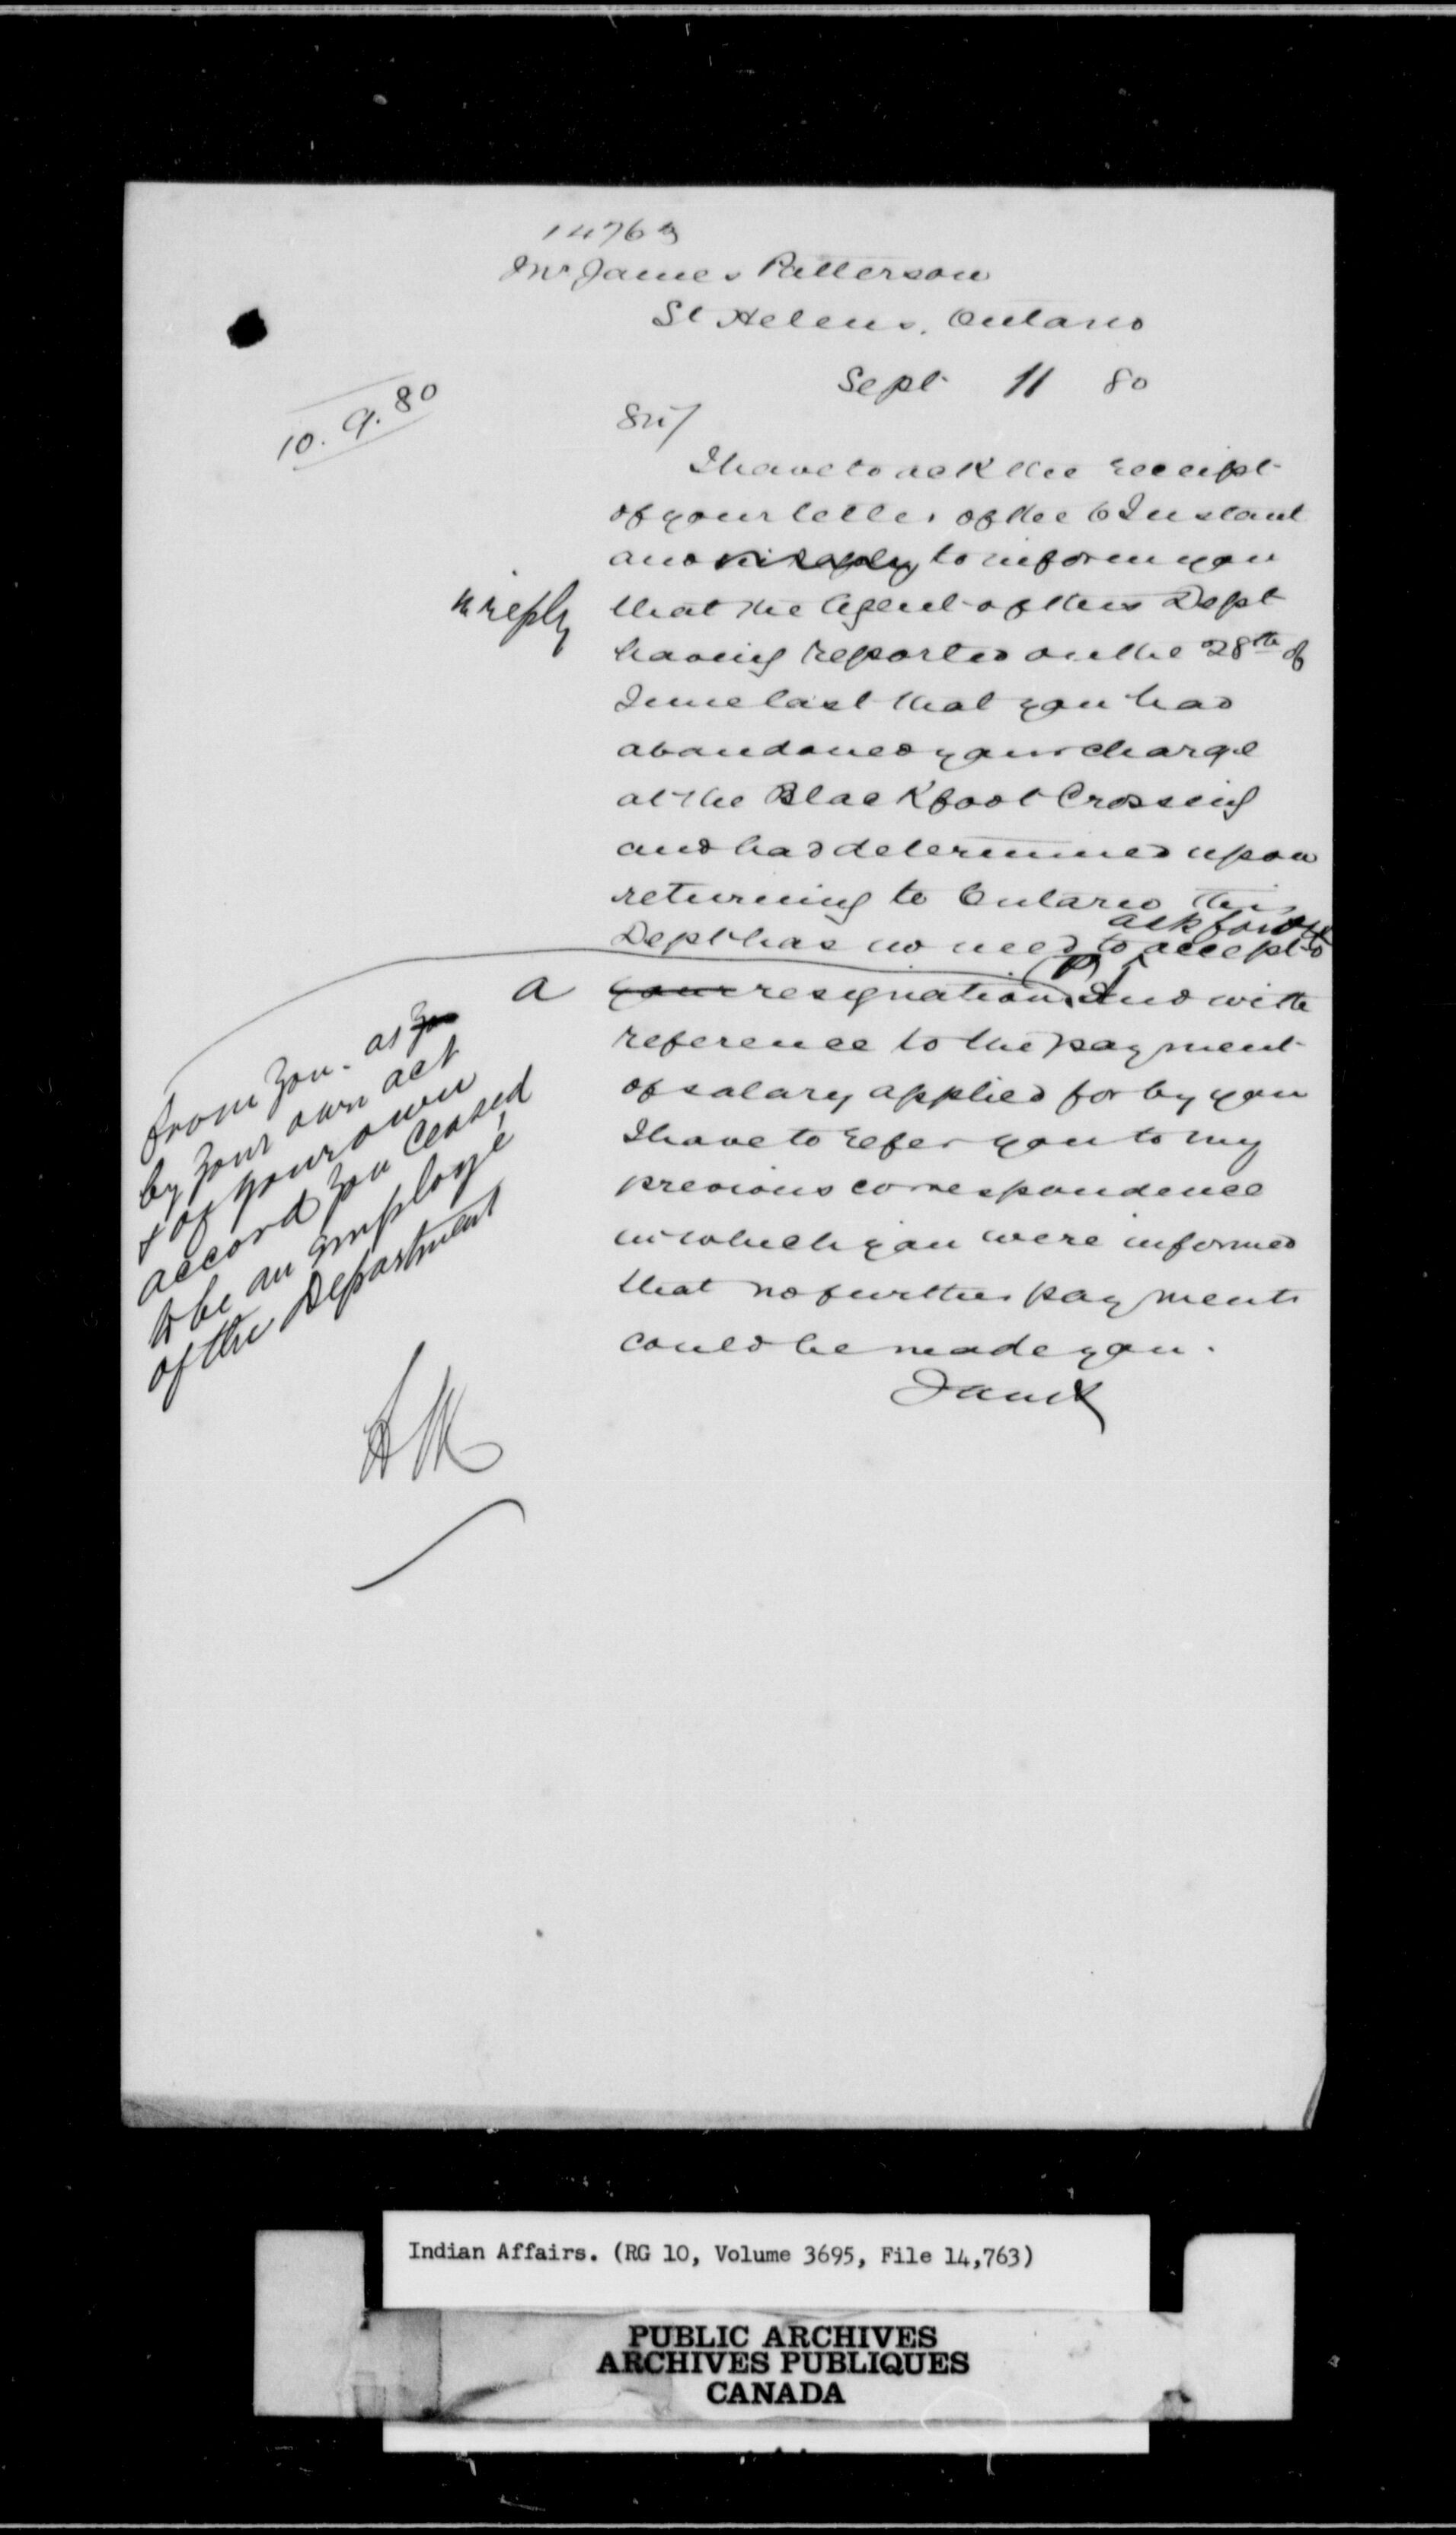 14763
Mr James Patterson
St Helens, Ontario
Sept 11 80
10. 9. 80
Sir/
I have to ack the receipt
of your letter of the 6 Instant
and in reply to inform you
in reply
that the Agent of this Dept
having reported on the 28th of
June last that you had
abandoned your charge
at the Blackfoot Crossing
and had determined upon
returning to Ontario this
ask for or to
Dept has no need to accept
a your resignation. And with
reference to the payment
of salary applied for by you
I have to refer you to my
previous correspondence
in which you were informed
that no further payments
could be made you.
from you. as you
by your own act
& of your own
accord you ceased
to be an employé
of the Department
Indian Affairs. (RG 10, Volume 3695, File 14,763)
PUBLIC ARCHIVES
ARCHIVES PUBLIQUES
CANADA